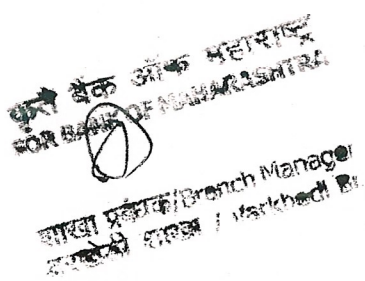 कृते बैंक ऑफ महाराष्ट्र
FOR BANK OF MAHARASHTRA
शाखा प्रबंधक/Branch Manager
शाखा / Varkhedi